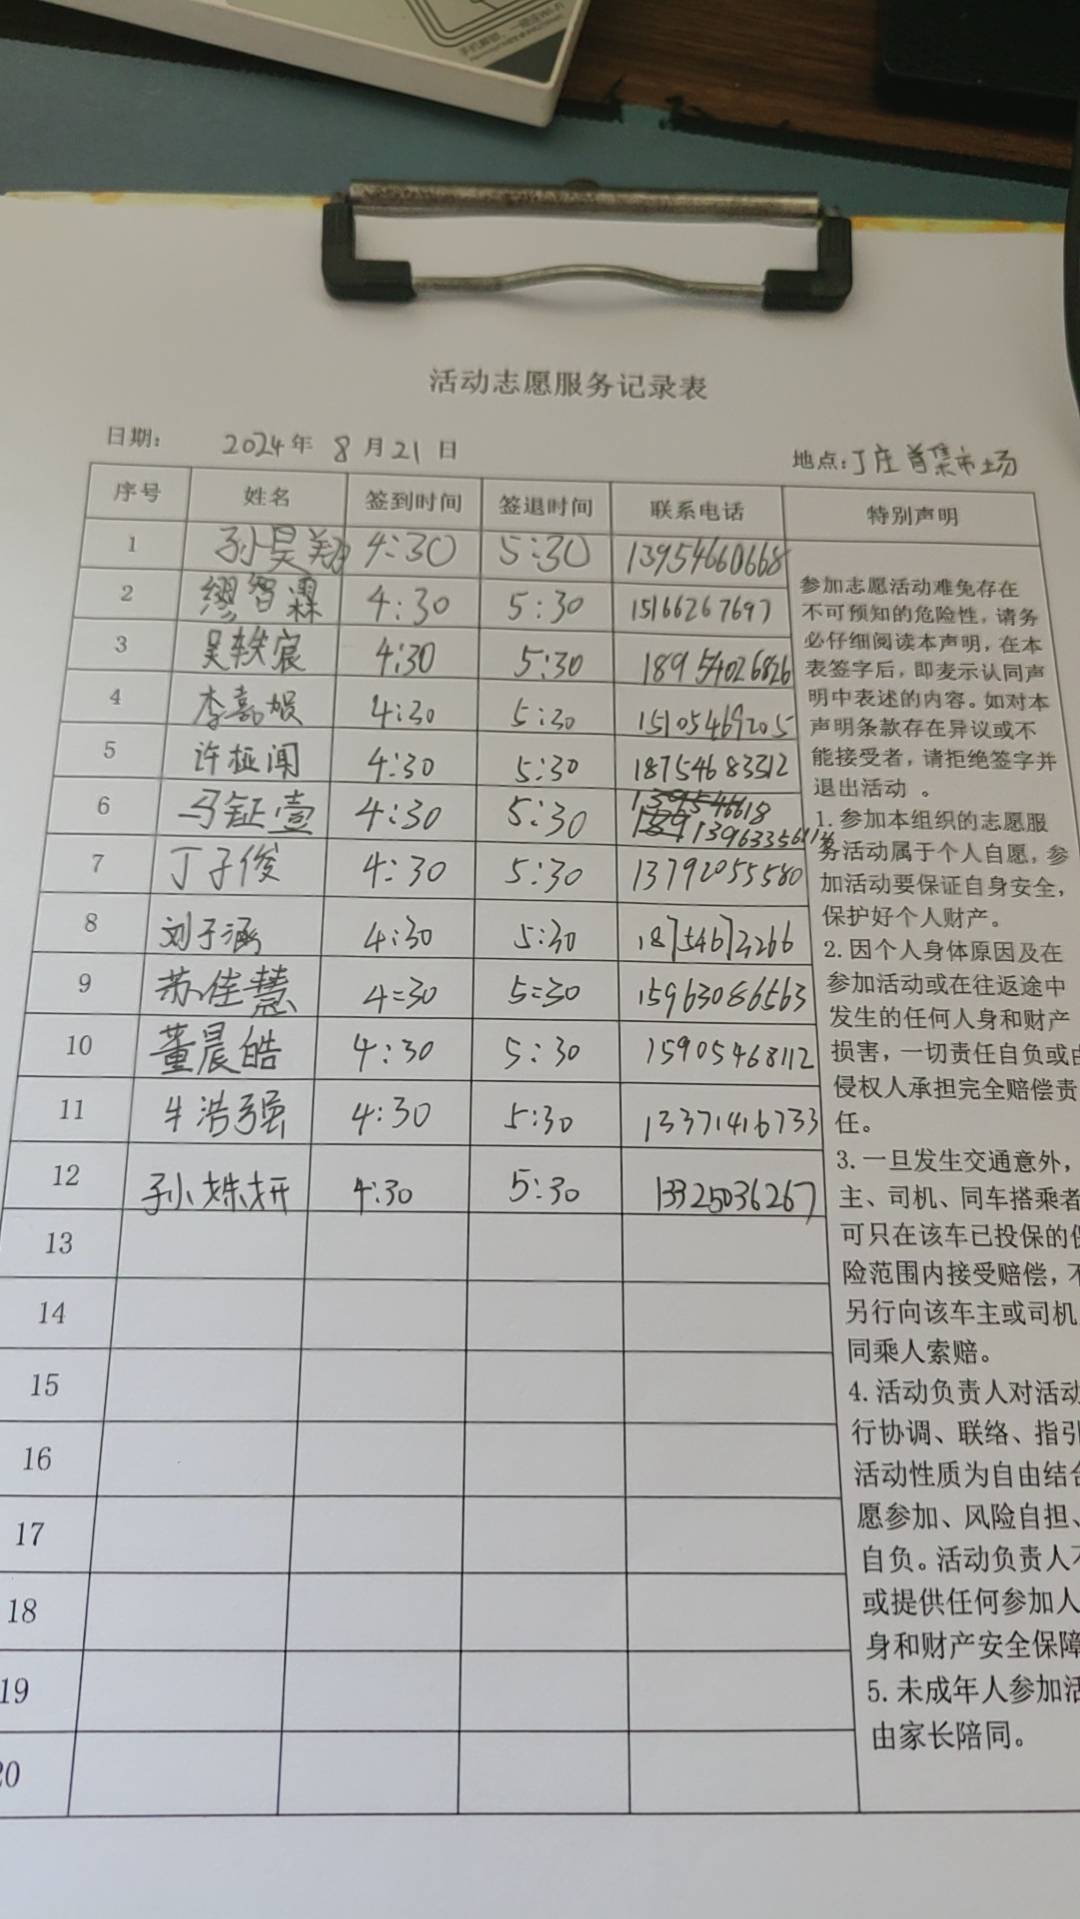 活动志愿服务记录表
日期： 2024年 8月21日
地点：丁庄首集市场
序号 姓名 签到时间 签退时间 联系电话 特别声明
1 孙昊翔 4:30 5:30 13954660668
2 缪智霖 4:30 5:30 15166267697
3 吴轶宸 4:30 5:30 18954026826
4 李嘉娱 4:30 5:30 15105469205
5 许桠闻 4:30 5:30 18754683312
6 马钲壹 4:30 5:30
7 丁子俊 4:30 5:30 13792055580
8 刘子涵 4:30 5:30 18754673266
9 苏佳慧 4=30 5=30 15963086563
10 董晨皓 4:30 5:30 15905468112
11 牛浩强 4:30 5:30 13371416733
12 孙姝妍 4:30 5:30 13325036267
13
14
15
16
17
18
19
20
参加志愿活动难免存在
不可预知的危险性，请务
必仔细阅读本声明，在本
表签字后，即麦示认同声
明中表述的内容。如对本
声明条款存在异议或不
能接受者，请拒绝签字并
退出活动 。
1. 参加本组织的志愿服
务活动属于个人自愿，参
加活动要保证自身安全，
保护好个人财产。
2. 因个人身体原因及在
参加活动或在往返途中
发生的任何人身和财产
损害，一切责任自负或由
侵权人承担完全赔偿责
任。
3. 一旦发生交通意外，
主、司机、同车搭乘者
可只在该车已投保的保
险范围内接受赔偿，不
另行向该车主或司机
同乘人索赔。
4. 活动负责人对活动
行协调、联络、指引
活动性质为自由结合
愿参加、风险自担、
自负。活动负责人不
或提供任何参加人
身和财产安全保障
5. 未成年人参加活
由家长陪同。